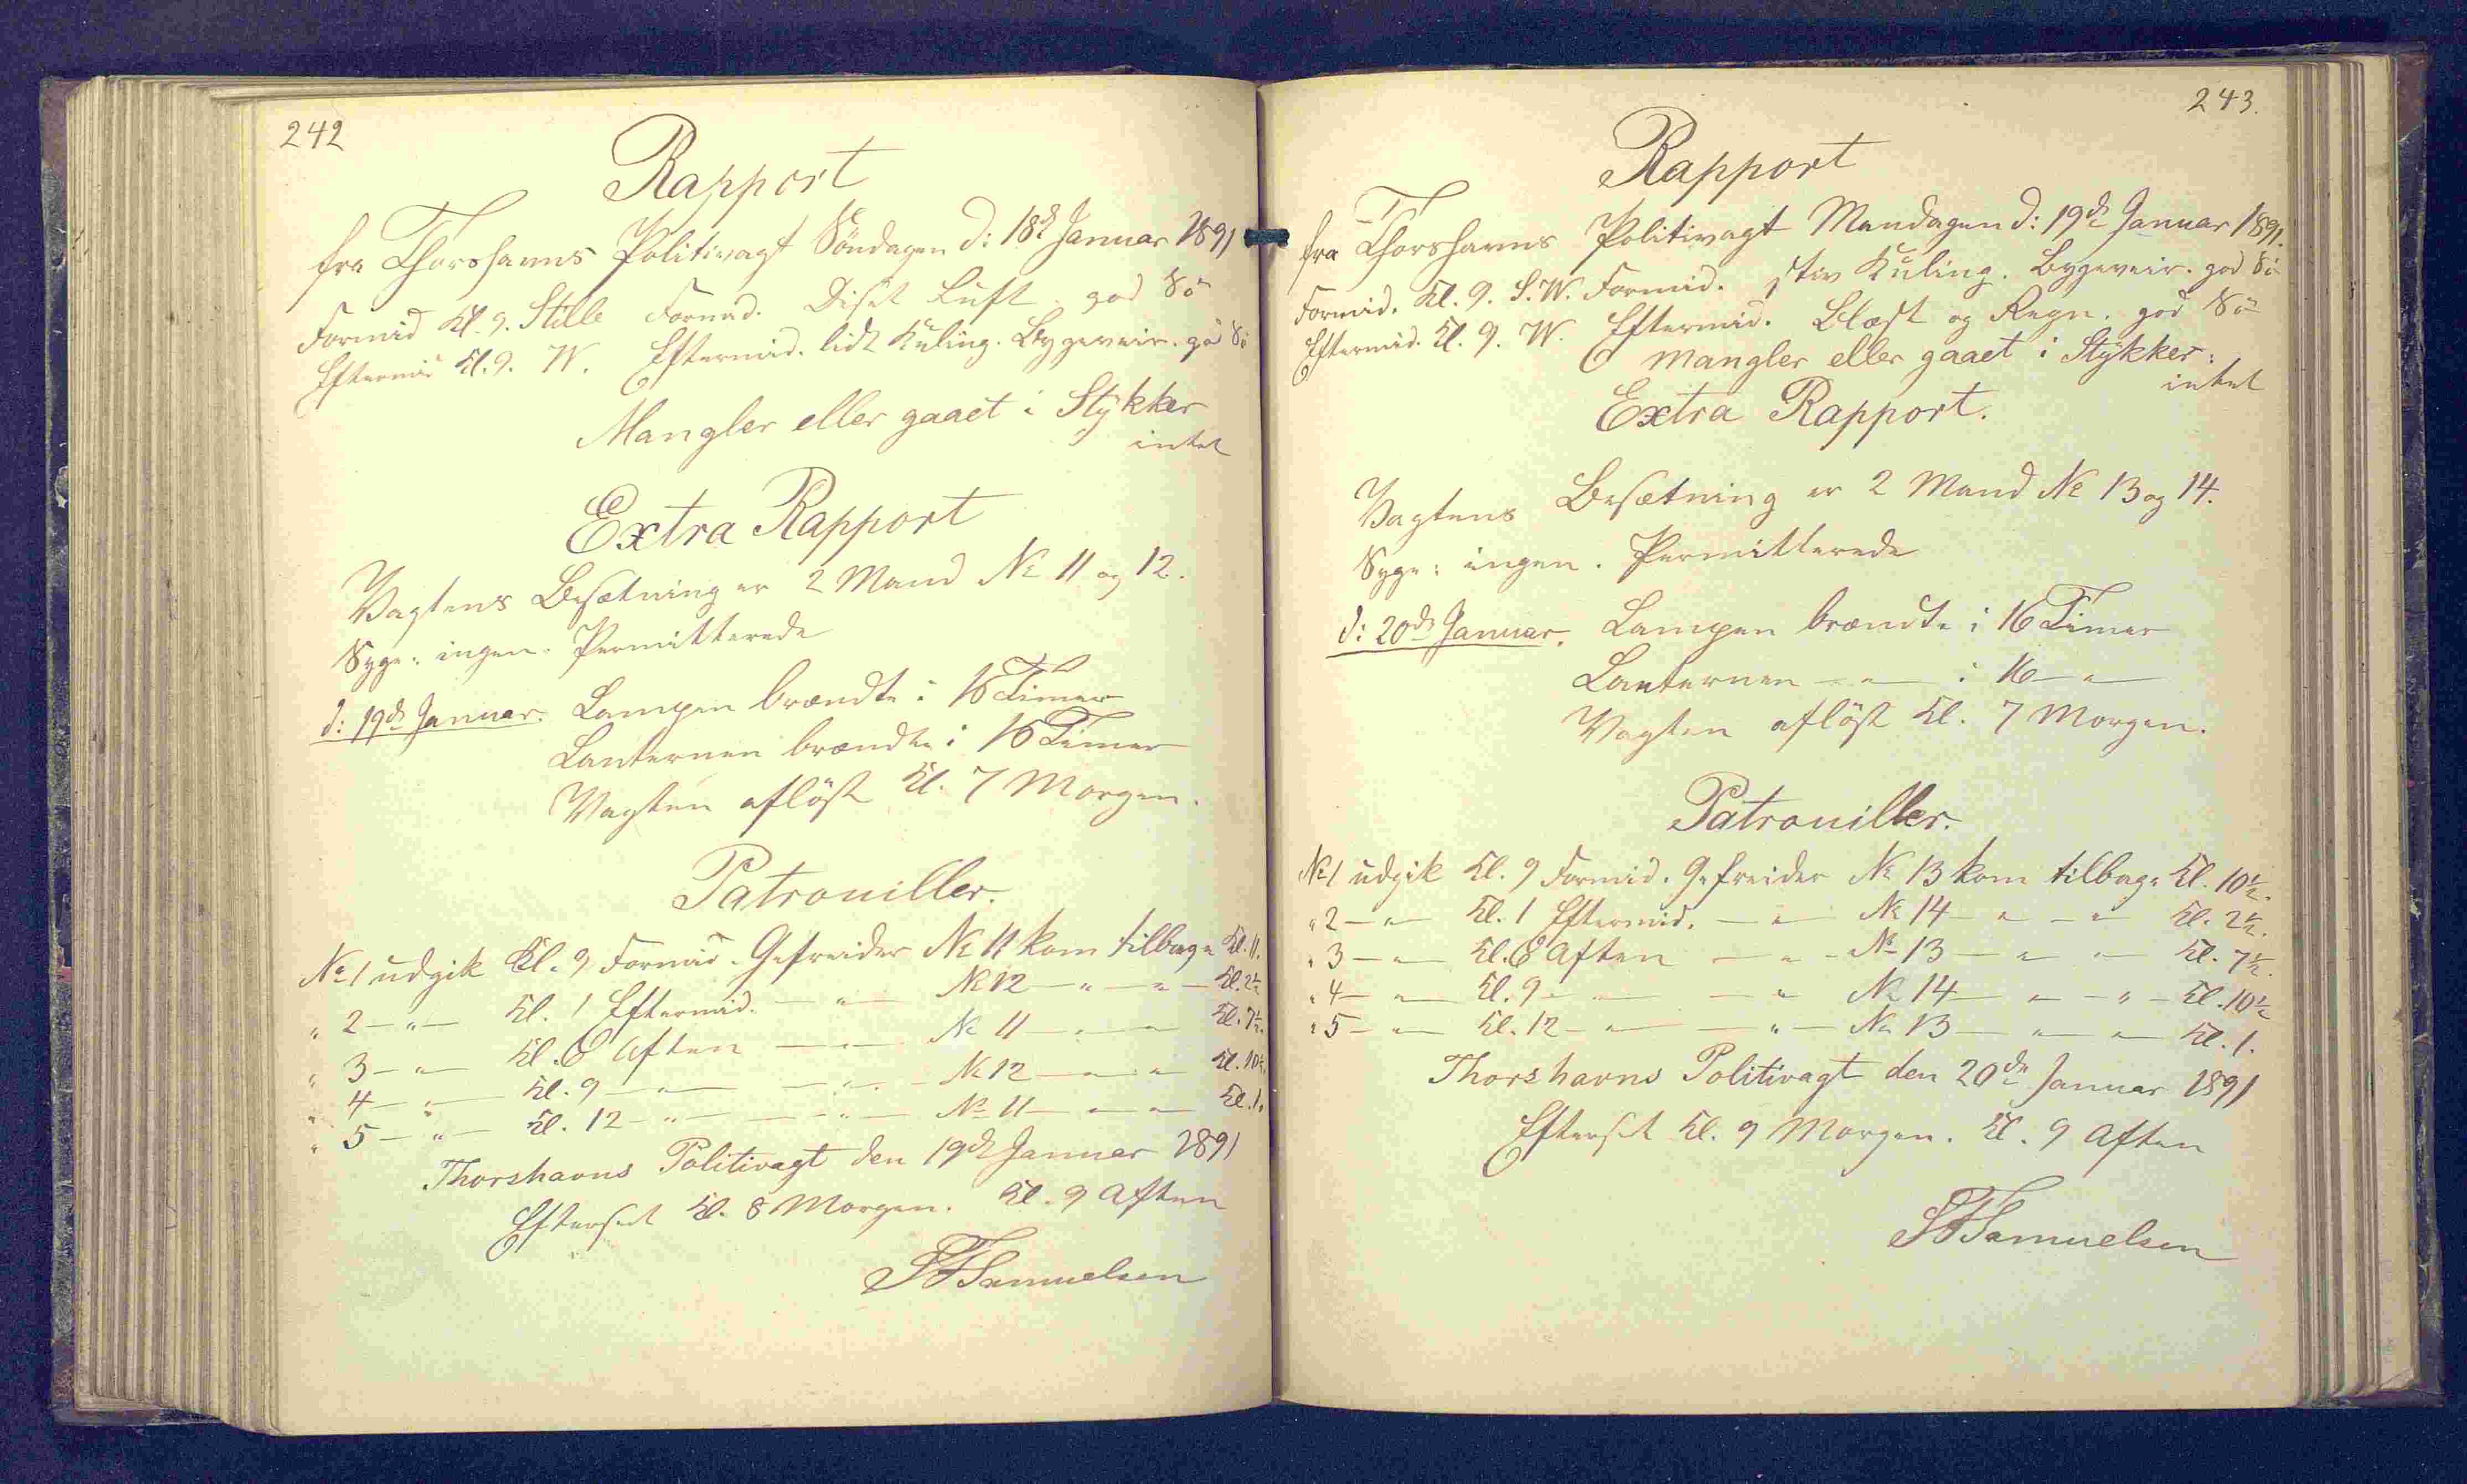 242
Rapport
fra Thorshavns Politivagt Söndagen d: 18de Januar 1891
Formid Kl. 9. Stille Formid. Diset Luft. god Sö
Eftermid Kl. 9. W. Eftermid. lidt Kuling. Bygeveir. god Sö
Mangler eller gaaet i Stykker
intet
Extra Rapport
Vagtens Besætning er 2 Mand No 11 og 12.
Syge: ingen. Permitterede
d: 19de Januar. Lampen brændte i 16 Timer
Lanternen brændte i 16 Timer
Vagten aflöst Kl. 7 Morgen.
Patrouiller.
No 1 udgik Kl. 9 Formid. Gefreider No 11 kom tilbage Kl. 11.
" 2 — " — Kl. 1 Eftermid. — " — No 12 — " — " — Kl. 2½
" 3 — " — Kl. 6 Aften — " — No 11 — " — " — Kl. 7½.
" 4 — " — Kl. 9 — " — — " — No 12 — " — " — Kl. 10½.
" 5 — " — Kl. 12 — " — — " — No 11 — " — " — Kl. 1.
Thorshavns Politivagt den 19de Januar 1891
Efterset Kl. 8 Morgen. Kl. 9 Aften
Samuelsen
243.
Rapport
fra Thorshavns Politivagt Mandagen d: 19de Januar 1891.
Formid. Kl. 9. S.W. Formid. stiv Kuling. Bygeveir. god Sö
Eftermid. Kl. 9. W. Eftermid. Blæst og Regn. god Sö
Mangler eller gaaet i Stykker:
intet
Extra Rapport.
Vagtens Besætning er 2 Mand No 13 og 14.
Syge: ingen. Permitterede
d: 20de Januar. Lampen brændte i 16 Timer
Lanternen — " — i 16 — " —
Vagten aflöst Kl. 7 Morgen.
Patrouiller.
No 1 udgik Kl. 9 Formid. Gefreider No 13 kom tilbage Kl. 10½.
" 2 — " — Kl. 1 Eftermid. — " — No 14 — " — " — Kl. 2½.
" 3 — " — Kl. 6 Aften — " — No 13 — " — " — Kl. 7½.
" 4 — " — Kl. 9 — " — — " — No 14 — " — " — Kl. 10½
" 5 — " — Kl. 12 — " — — " — No 13 — " — " — Kl. 1.
Thorshavns Politivagt den 20de Januar 1891
Efterset Kl. 9 Morgen. Kl. 9 Aften
Samuelsen